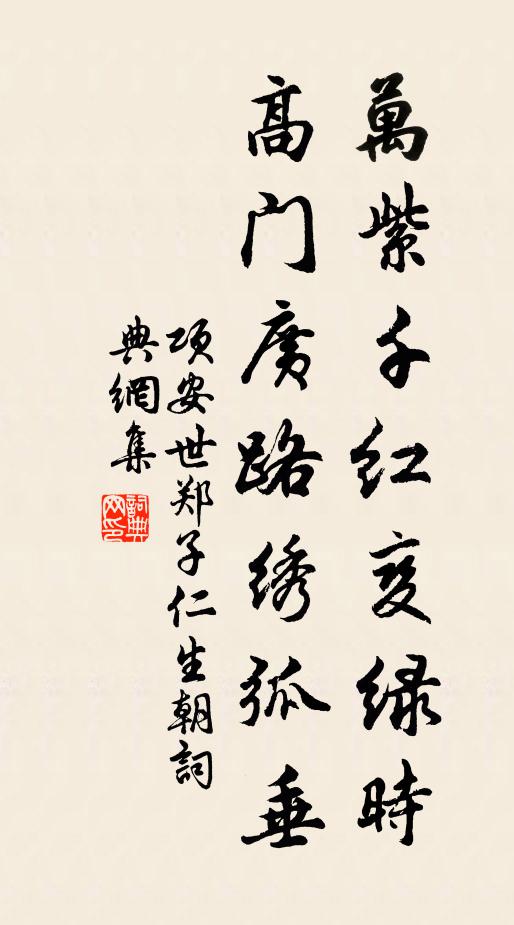 萬紫千红变绿時
髙门廣路绣弧垂
项安世郑子仁生朝詞
典網集
詞典
网印